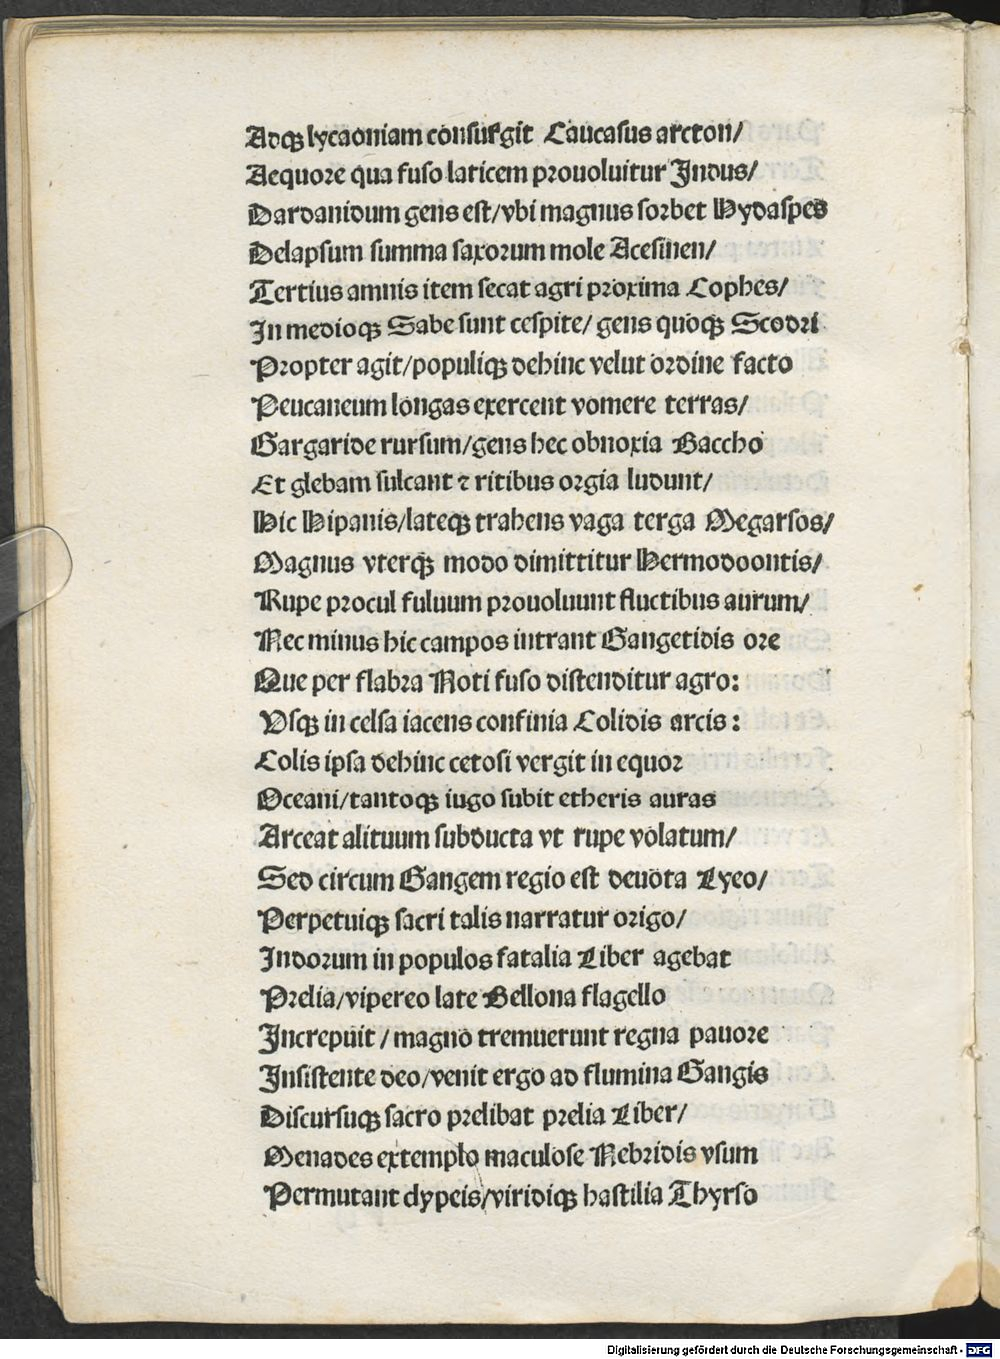 Adqꝫ lycaoniam consurgit Caucasus arcton/
Aequore qua fuso laticem prouoluitur Indus/
Dardanidum gens est/vbi magnus sorbet Hydaspes
Delapsum summa saxorum mole Acesinen/
Tertius amnis item secat agri proxima Cophes/
In medioqꝫ Sabe sunt cespite/ gens quoqꝫ Scodri
Propter agit/populiqꝫ dehinc velut ordine facto
Peucaneum longas exercent vomere terras/
Gargaride rursum/gens hec obnoxia Baccho
Et glebam sulcant ⁊ ritibus orgia ludunt/
Hic Hipanis/lateqꝫ trahens vaga terga Megarsos/
Magnus vterqꝫ modo dimittitur Hermodoontis/
Rupe procul fuluum prouoluunt fluctibus aurum/
Nec minus hic campos intrant Gangetidis ore
Que per flabra Noti fuso distenditur agro:
Vsqꝫ in celsa iacens confinia Colidis arcis:
Colis ipsa dehinc cetosi vergit in equor
Oceani/tantoqꝫ iugo subit etheris auras
Arceat alituum subducta vt rupe volatum/
Sed circum Gangem regio est deuota Lyeo/
Perpetuiqꝫ sacri talis narratur origo/
Indorum in populos fatalia Liber agebat
Prelia/vipereo late Bellona flagello
Increpuit/ magno tremuerunt regna pauore
Insistente deo/venit ergo ad flumina Gangis
Discursuqꝫ sacro prelibat prelia Liber/
Menades extemplo maculose Nebridis vsum
Permutant clypeis/viridiqꝫ hastilia Thyrso
Digitalisierung gefördert durch die Deutsche Forschungsgemeinschaft - DFG